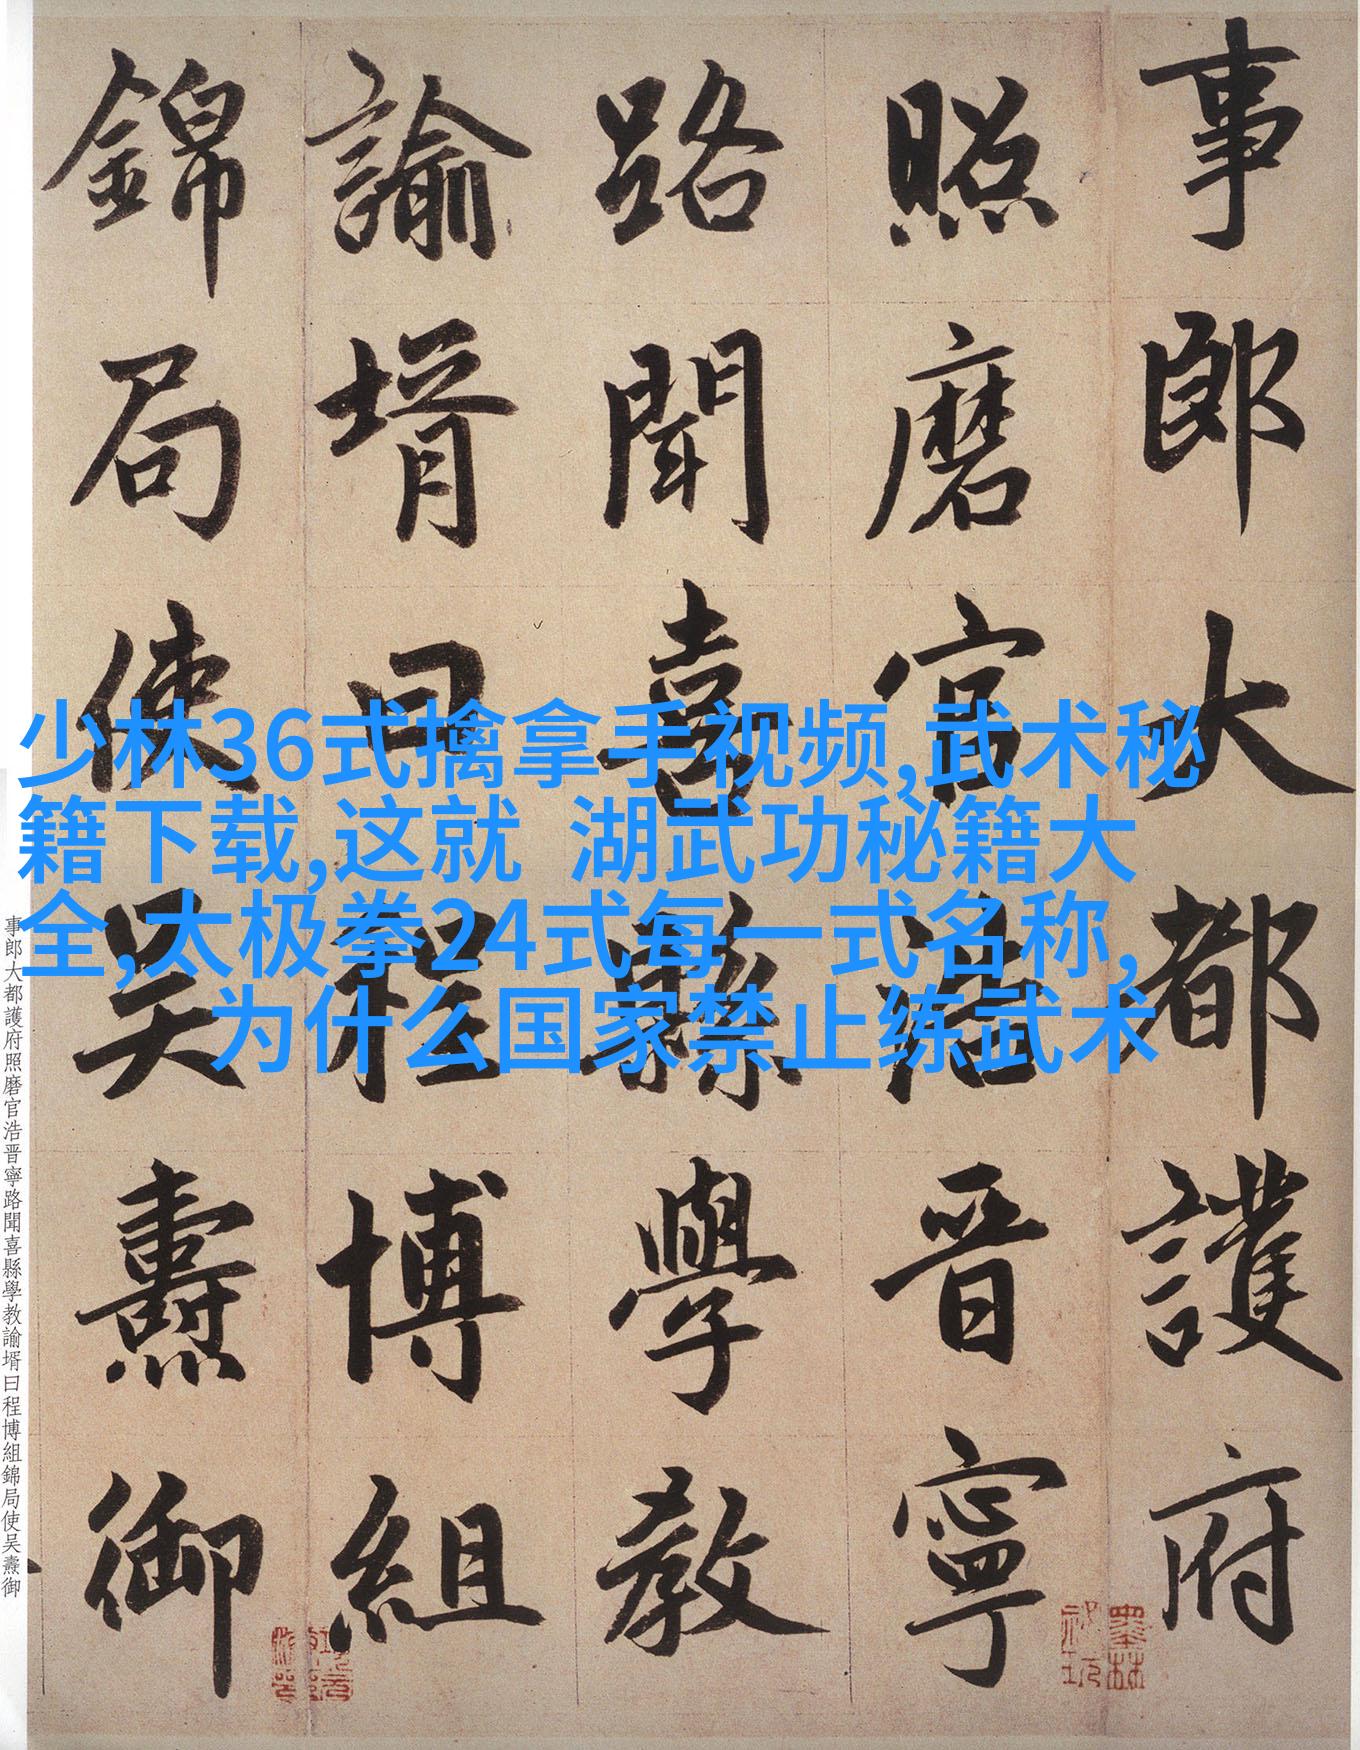 事郎大都護府
照磨官浩晋寧
路聞喜縣學教
諭壻曰程博組
錦局使吴燾御
少林36式擒拿手视频,武术秘
籍下载,这就 湖武功秘籍大
全,太极拳24式每一式名称,
为什么国家禁止练武术
事郎大都護府照磨官浩晋寧路聞喜縣學教諭壻曰程博組錦局使吴燾御